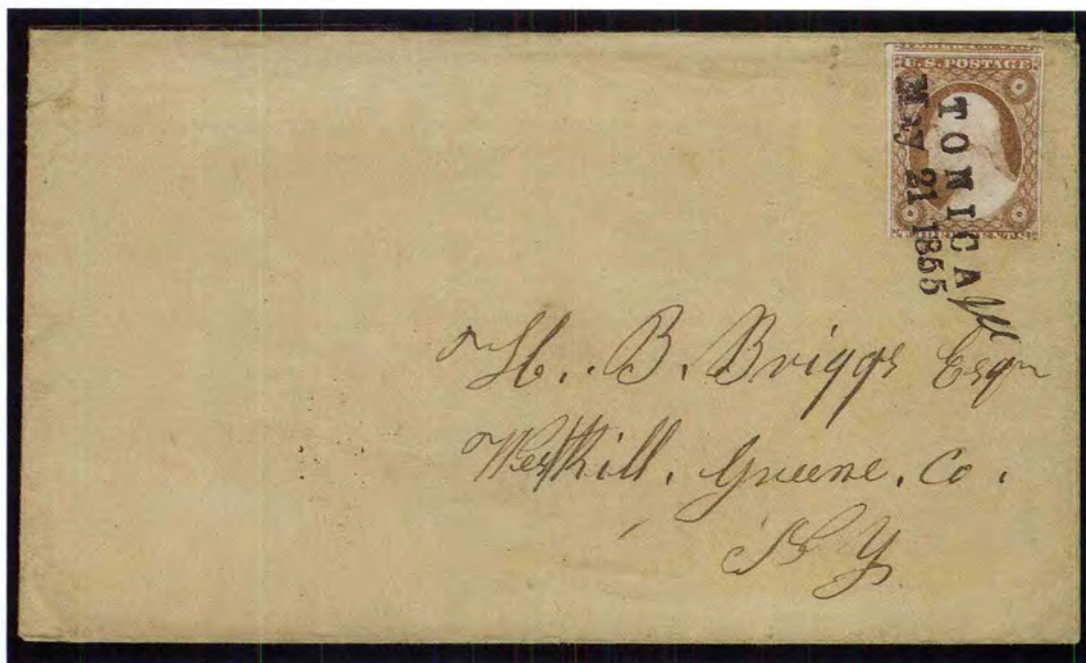 U.S. POSTAGE
THREE CENTS
TONICA Ill
May 21 1855
H. B. Briggs Esqr
WestKill. Greene. Co.
N Y